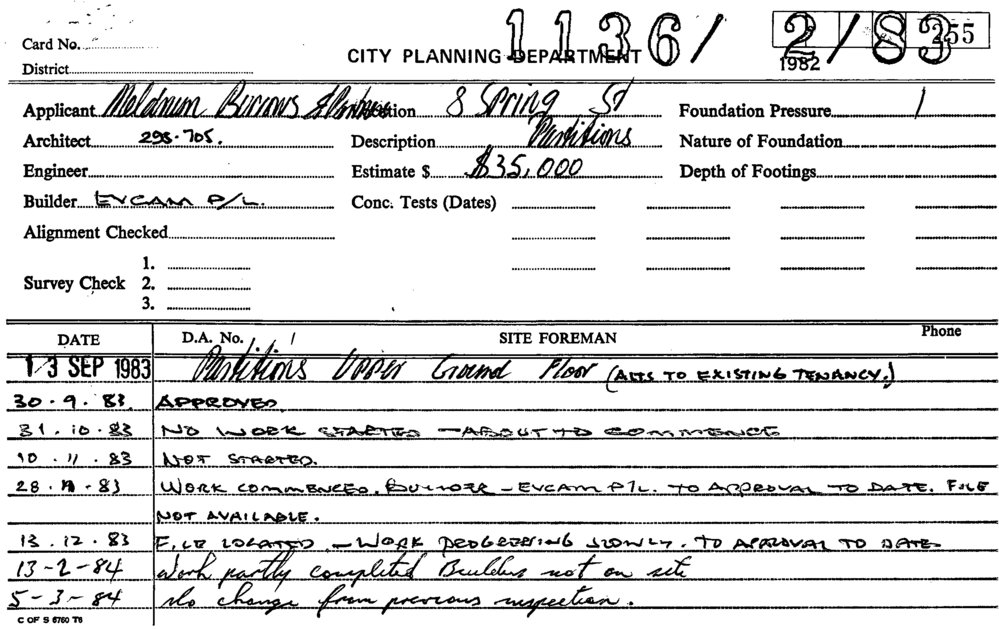 1136/ 2/83 255
Card No.
CITY PLANNING DEPARTMENT 1982
District
Applicant Meldrum Burrows & Partners Location 8 Spring St Foundation Pressure /
Architect 295.705. Description Partitions Nature of Foundation
Engineer Estimate $ $35,000 Depth of Footings
Builder EVCAM P/L. Conc. Tests (Dates)
Alignment Checked
1.
Survey Check 2.
3.
DATE D.A. No. SITE FOREMAN Phone
13 SEP 1983 Partitions Upper Ground Floor (ALTS TO EXISTING TENANCY.)
30.9.83 APPROVED
31.10.83 NO WORK STARTED - ABOUT TO COMMENCE
10.11.83 NOT STARTED.
28.11.83 WORK COMMENCED. BUILDER - EVCAM P/L. TO APPROVAL TO DATE. FILE
NOT AVAILABLE.
13.12.83 FILE LOCATED - WORK PROGRESSING SLOWLY. TO APPROVAL TO DATE
13-2-84 Work partly completed Builders not on site
5-3-84 No change from previous inspection.
C OF S 6760 T6